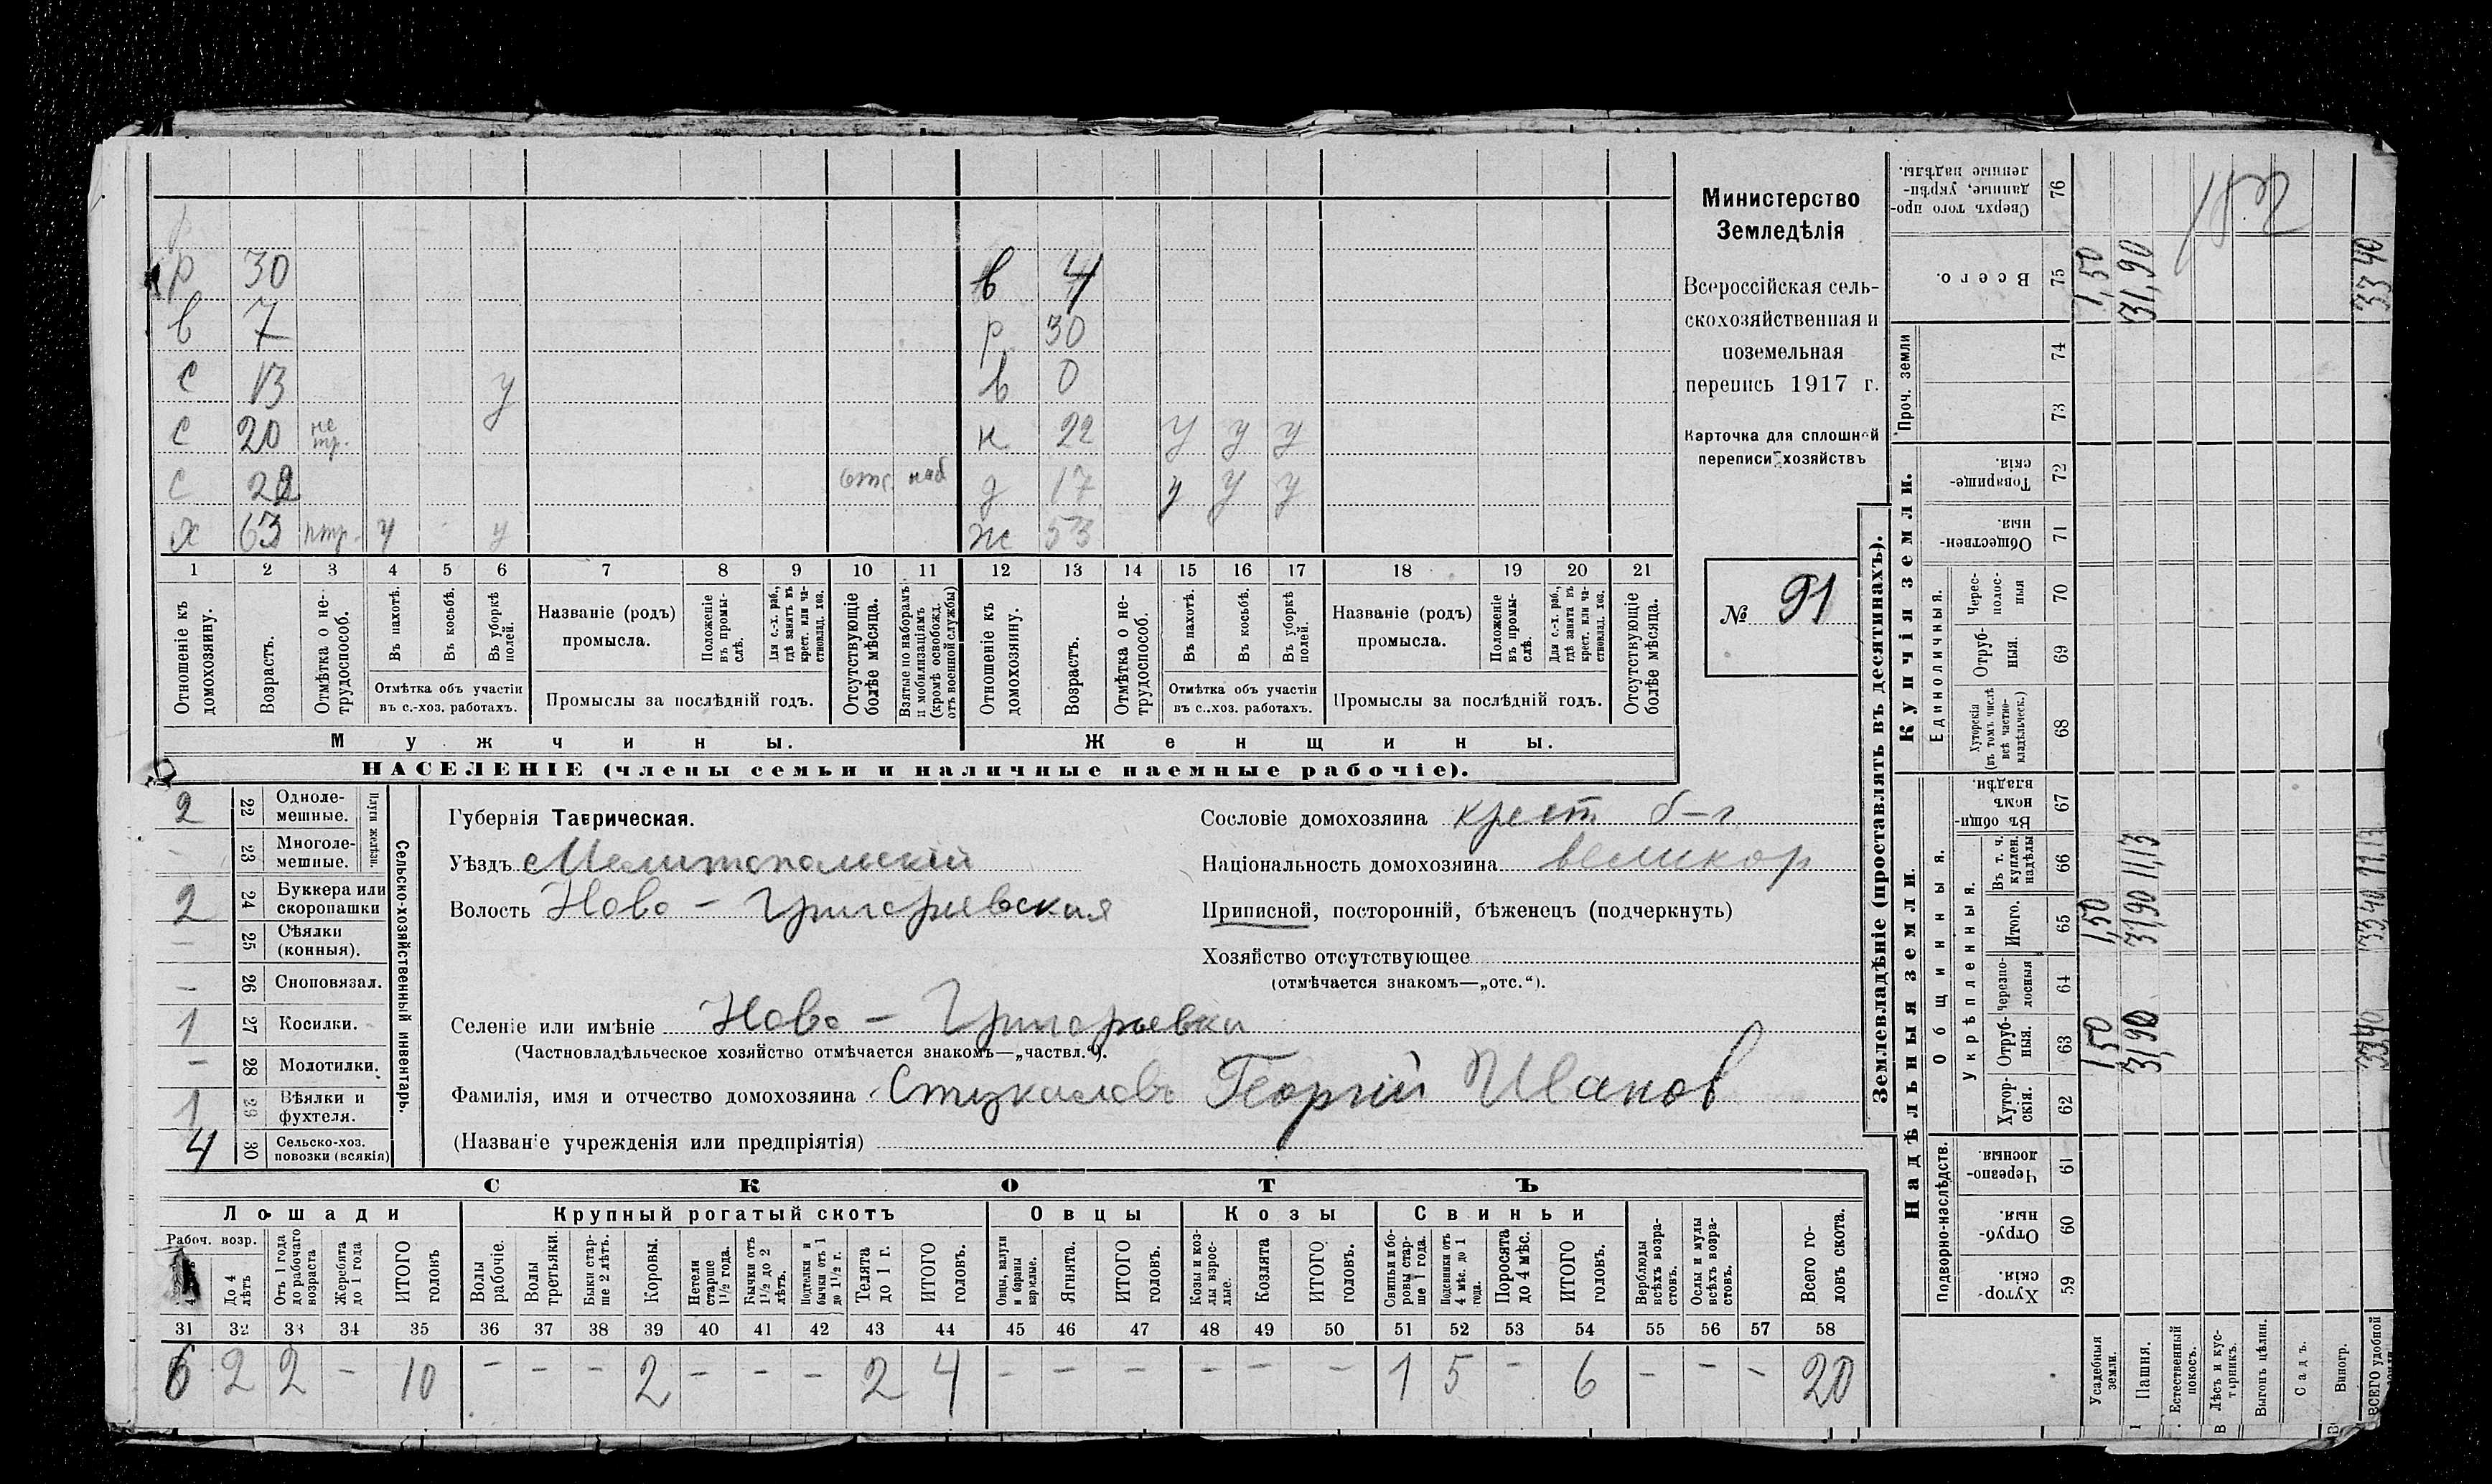 р 30 в 4
в 7 р 30
с 13 у в 0
с 20 не тр. н 22 у у у
с 22 отс. наб д 17 у у у
х 63 птр. у у ж 53
1 2 3 4 5 6 7 8 9 10 11 12 13 14 15 16 17 18 19 20 21
Отношеніе къ домохозяину.
Возрастъ.
Отмѣтка о не-трудоспособ.
Въ пахотѣ.
Въ косьбѣ.
Въ уборкѣ полей.
Отмѣтка объ участіи въ с.-хоз. работахъ.
Названіе (родъ) промысла.
Положеніе въ промы-слѣ.
Для с.-х. раб., гдѣ занятъ въ крест. или ча-стновлад. хоз.
Промыслы за послѣдній годъ.
Отсутствующіе болѣе мѣсяца.
Взятые по наборамъ и мобилизаціямъ (кромѣ освобожд. отъ военной службы)
Отношеніе къ домохозяину.
Возрастъ.
Отмѣтка о не-трудоспособ.
Въ пахотѣ.
Въ косьбѣ.
Въ уборкѣ полей.
Отмѣтка объ участіи въ с..хоз. работахъ.
Названіе (родъ) промысла.
Положеніе въ промы-слѣ.
Для с.-х. раб., гдѣ занята въ крест. или ча-стновлад. хоз.
Промыслы за послѣдній годъ.
Отсутствующіе болѣе мѣсяца.
Мужчины. Женщины.
НАСЕЛЕНІЕ (члены семьи и наличные наемные рабочіе).
Министерство
Земледѣлія
Всероссійская сель-
скохозяйственная и
поземельная
перепись 1917 г.
Карточка для сплошной
переписи хозяйствъ
№ 91
Сельско-хозяйственный инвентарь.
Плуги желѣзн.
2 22 Одноле-мешные.
- 23 Многоле-мешные.
2 24 Буккера или скоропашки
— 25 Сѣялки (конныя).
— 26 Сноповязал.
1 27 Косилки.
— 28 Молотилки.
1 29 Вѣялки и фухтеля.
4 30 Сельско-хоз. повозки (всякія)
Губернія Таврическая.
Уѣздъ Мелитопольскій
Волость Ново - Григорьевская
Селеніе или имѣніе Ново - Григорьевка
(Частновладѣльческое хозяйство отмѣчается знакомъ—„частвл.“).
Фамилія, имя и отчество домохозяина Стукаловъ Георгій Иванов
(Названіе учрежденія или предпріятія)
Сословіе домохозяина крест б-г
Національность домохозяина великор
Приписной, посторонній, бѣженецъ (подчеркнуть)
Хозяйство отсутствующее
(отмѣчается знакомъ—„отс.“).
СКОТЪ
Лошади Крупный рогатый скотъ Овцы Козы Свиньи
Рабоч. возр.
До 4 лѣтъ
Отъ 1 года до рабочаго возраста
Жеребята до 1 года
ИТОГО головъ
Волы рабочіе.
Волы третьяки.
Быки стар-ше 2 лѣтъ.
Коровы.
Нетели старше 1½ года.
Бычки отъ 1½ до 2 лѣтъ.
Подтелки и бычки отъ 1 до 1½ г.
Телята до 1 г.
ИТОГО головъ.
Овцы, валухи и бараны взрослые.
Ягнята.
ИТОГО головъ.
Козы и коз-лы взрос-лые.
Козлята
ИТОГО головъ.
Свиньи и бо-ровы стар-ше 1 года.
Подсвинки отъ 4 мѣс. до 1 года.
Поросята до 4 мѣс.
ИТОГО головъ.
Верблюды всѣхъ возра-стовъ.
Ослы и мулы всѣхъ возра-стовъ.
Всего го-ловъ скота.
31 32 33 34 35 36 37 38 39 40 41 42 43 44 45 46 47 48 49 50 51 52 53 54 55 56 57 58
6 2 2 - 10 - - - 2 - - - 2 4 - - - - - - 1 5 - 6 - - - 20
Землевладѣніе (проставлять въ десятинахъ).
Надѣльныя земли.
Подворно-наслѣдств.
Хутор-скія. 59
Отруб-ныя. 60
Черезпо-лосныя. 61
Общинныя.
Укрѣпленныя.
Хутор-скія. 62
Отруб-ныя. 63
Черезпо-лосныя 64
Итого. 65
Въ т. ч. куплен. надѣлы 66
Въ общин-номъ владѣн. 67
Купчія земли.
Единоличныя.
Хуторскія (въ томъ числѣ всѣ частно-владѣльческ.) 68
Отруб-ныя. 69
Черес-полос-ныя 70
Обществен-ныя. 71
Товарище-скія. 72
Проч. земли 73 74
Всего. 75
Сверхъ того про-данные, укрѣп-ленные надѣлы. 76
Усадебныя земли. 1,50 1,50 1,50
Пашня. 31,90 31,90 11,13 31,90
Естественный покосъ.
Лѣсъ и кус-тарникъ.
Выгонъ цѣлин.
Садъ.
Виногр.
ВСЕГО удобной 33,40 33,40 11,13 33 40